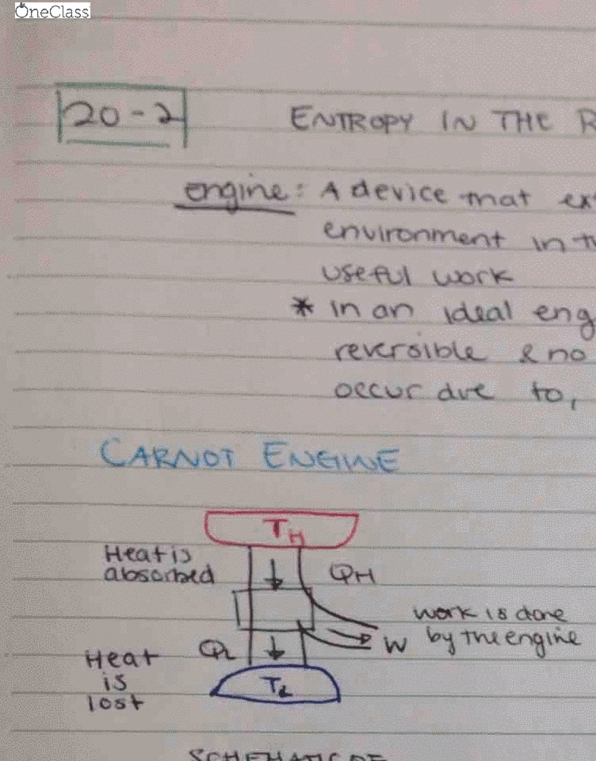 OneClass
20-2
ENTROPY IN THE R
engine: A device that ex
environment in t
useful work
* in an ideal eng
reversible & no
occur due to,
CARNOT ENGINE
TH
Heat is
absorbed
QH
work is done
by the engine
W
QL
Heat
is
lost
TL
SCHEMATIC OF